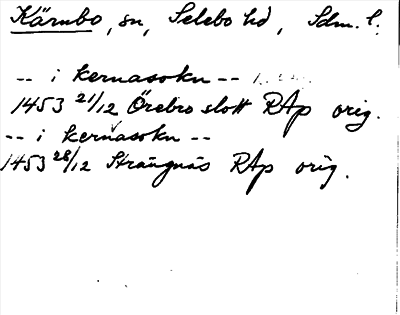 Kärnbo, sn, Selebo hd, Sdm. l.
-- i kernasokn --
1453 21/12 Örebro slott RAp orig.
-- i kernasokn --
1453 28/12 Strängnäs RAp orig.